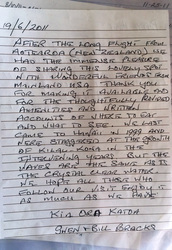 19/6/2011
AFTER THE LONG FLIGHT FROM
AOTEAROA (NEW ZEALAND) WE
HAD THE IMMENSE PLEASURE
OF SHARING THIS LOVELY SPOT
WITH WONDERFUL FRIENDS FROM
MAINLAND USA. THANK YOU
FOR MAKING IT AVAILABLE AND
FOR THE THOUGHTFULLY
AND WRITTEN
ACCOUNTS OF WHERE TO EAT
AND WHAT TO SEE. WE LAST
CAME TO HAWAII IN 1999 AND
WERE STAGGERED AT THE GROWTH
OF KAILUA KONA IN THE
INTERVENING YEARS. BUT THE
WAVES ARE THE SAME AS IS
THE CRYSTAL CLEAR WATER
WE HOPE THOSE WHO
FOLLOW OUR VISIT ENJOY IT
AS MUCH AS WE HAVE
KIA ORA KATOA
GWEN & BILL BRACKS